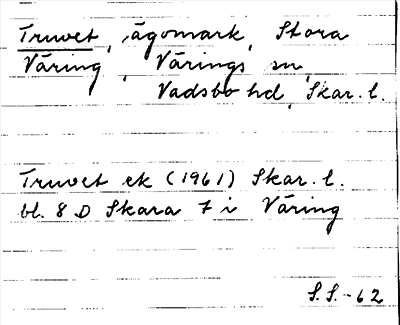 Truvet, ägomark, Stora
Väring, Värings sn,
Vadsbo hd, Skar. l.
Truvet ek (1961) Skar. l.
bl. 8 D Skara 7 i Väring
S.S.-62